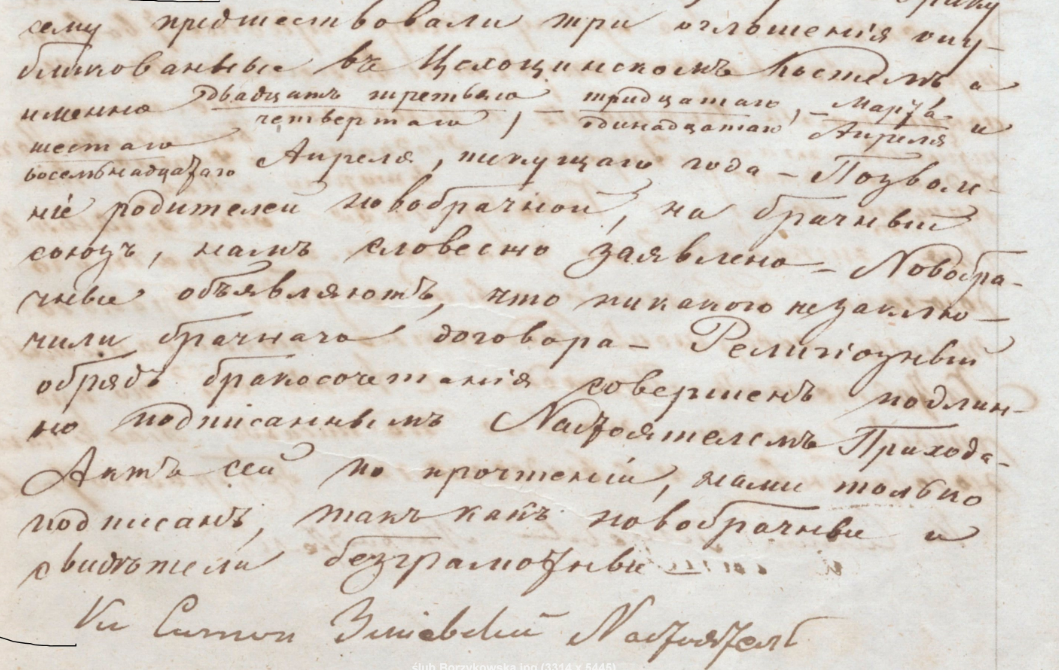 браку
сему предшествовали три оглашенія опу-
бликованные въ Цѣлоцинскомъ Костелѣ а
именно двадцать третьяго четвертаго, тридцатаго, Марта и
шестаго одинадцатаго Апреля
восемьнадцатаго Апреля, текущаго года – Позволе-
ніе родителей новобрачной, на брачный
союзъ, намъ словесно заявлено – Новобра-
чные объявляютъ, что никакого незаклю-
чили брачнаго договора – Религіозный
обрядъ бракосочетанія совершенъ подлин-
но подписаннымъ Настоятелемъ Прихода –
Актъ сей по прочтеніи, нами только
подписанъ, такъ какъ новобрачные и
свидѣтели безграмотные
Кс Симон Настоятель
ślub Borzykowska.jpg (3314 x 5445)